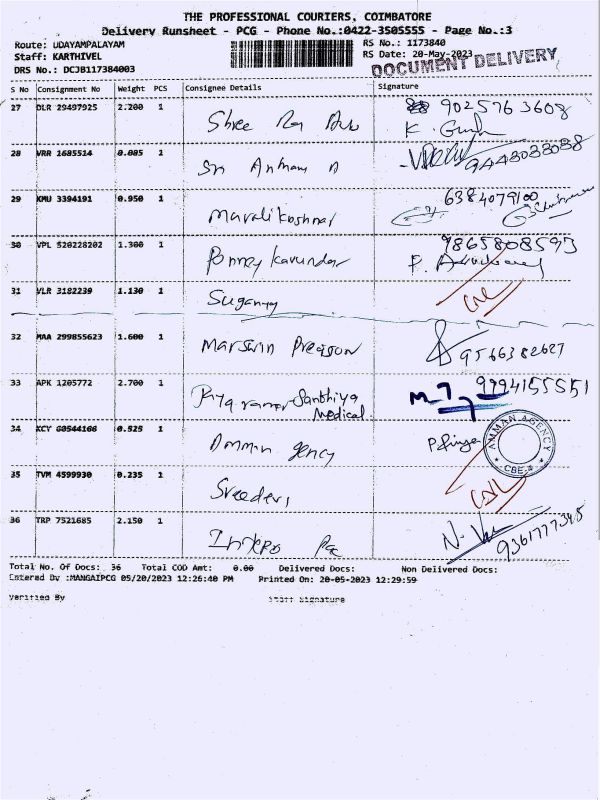 THE PROFESSIONAL COURIERS, COIMBATORE
Delivery Runsheet - PCG - Phone No.:0422-3505555 - Page No.:3
Route: UDAYAMPALAYAM RS No.: 1173840
Staff: KARTHIVEL RS Date: 20-May-2023
DRS No.: DCJB117384003 DOCUMENT DELIVERY
S No Consignment No Weight PCS Consignee Details Signature
27 DLR 29497925 2.200 1 9025763608
Shree
28 VRR 1685514 0.085 1
Sri 9443083088
29 KMU 3394191 0.950 1 6384079100
Muralikrishnan
30 VPL 520228202 1.300 1 9865808593
Ponnay Kavundar
31 VLR 3182239 1.130 1
Suganya
32 MAA 299855623 1.600 1
Marswin Precision 9566382627
33 APK 1205772 2.700 1 9994155551
Santhiya
Medical
34 KCY 60544166 0.525 1 AMMAN AGENCY
CBE-4
35 TVM 4599930 0.235 1
Sreedevi
36 TRP 7521685 2.150 1 9361777345
Total No. Of Docs: 36 Total COD Amt: 0.00 Delivered Docs: Non Delivered Docs:
Entered By :MANGAIPCG 05/20/2023 12:26:40 PM Printed On: 20-05-2023 12:29:59
Verified By Staff Signature